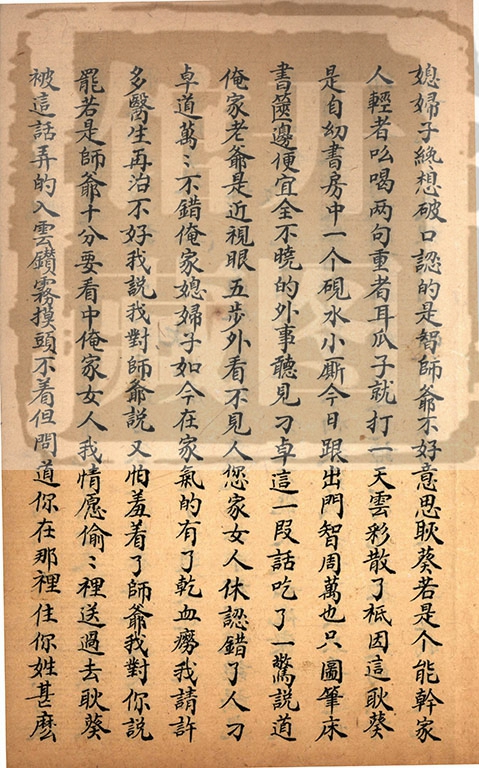 媳婦子纔想破口認的是智師爺不好意思耿葵若是个能幹家
人輕者吆喝两句重者耳瓜子就打一天雲彩散了祇因這耿葵
是自幼書房中一个硯水小厮今日跟出門智周萬也只圖筆床
書篋邊便宜全不曉的外事聽見刁卓這一段話吃了一驚說道
俺家老爺是近視眼五步外看不見人您家女人休認錯了人刁
卓道萬〻不錯俺家媳婦子如今在家氣的有了乾血癆我請許
多醫生再治不好我說我對師爺說又怕羞着了師爺我對你說
罷若是師爺十分要看中俺家女人我情愿偷〻裡送過去耿葵
被這話弄的入雲鑚霧摸頭不着但問道你在那裡住你姓甚麽